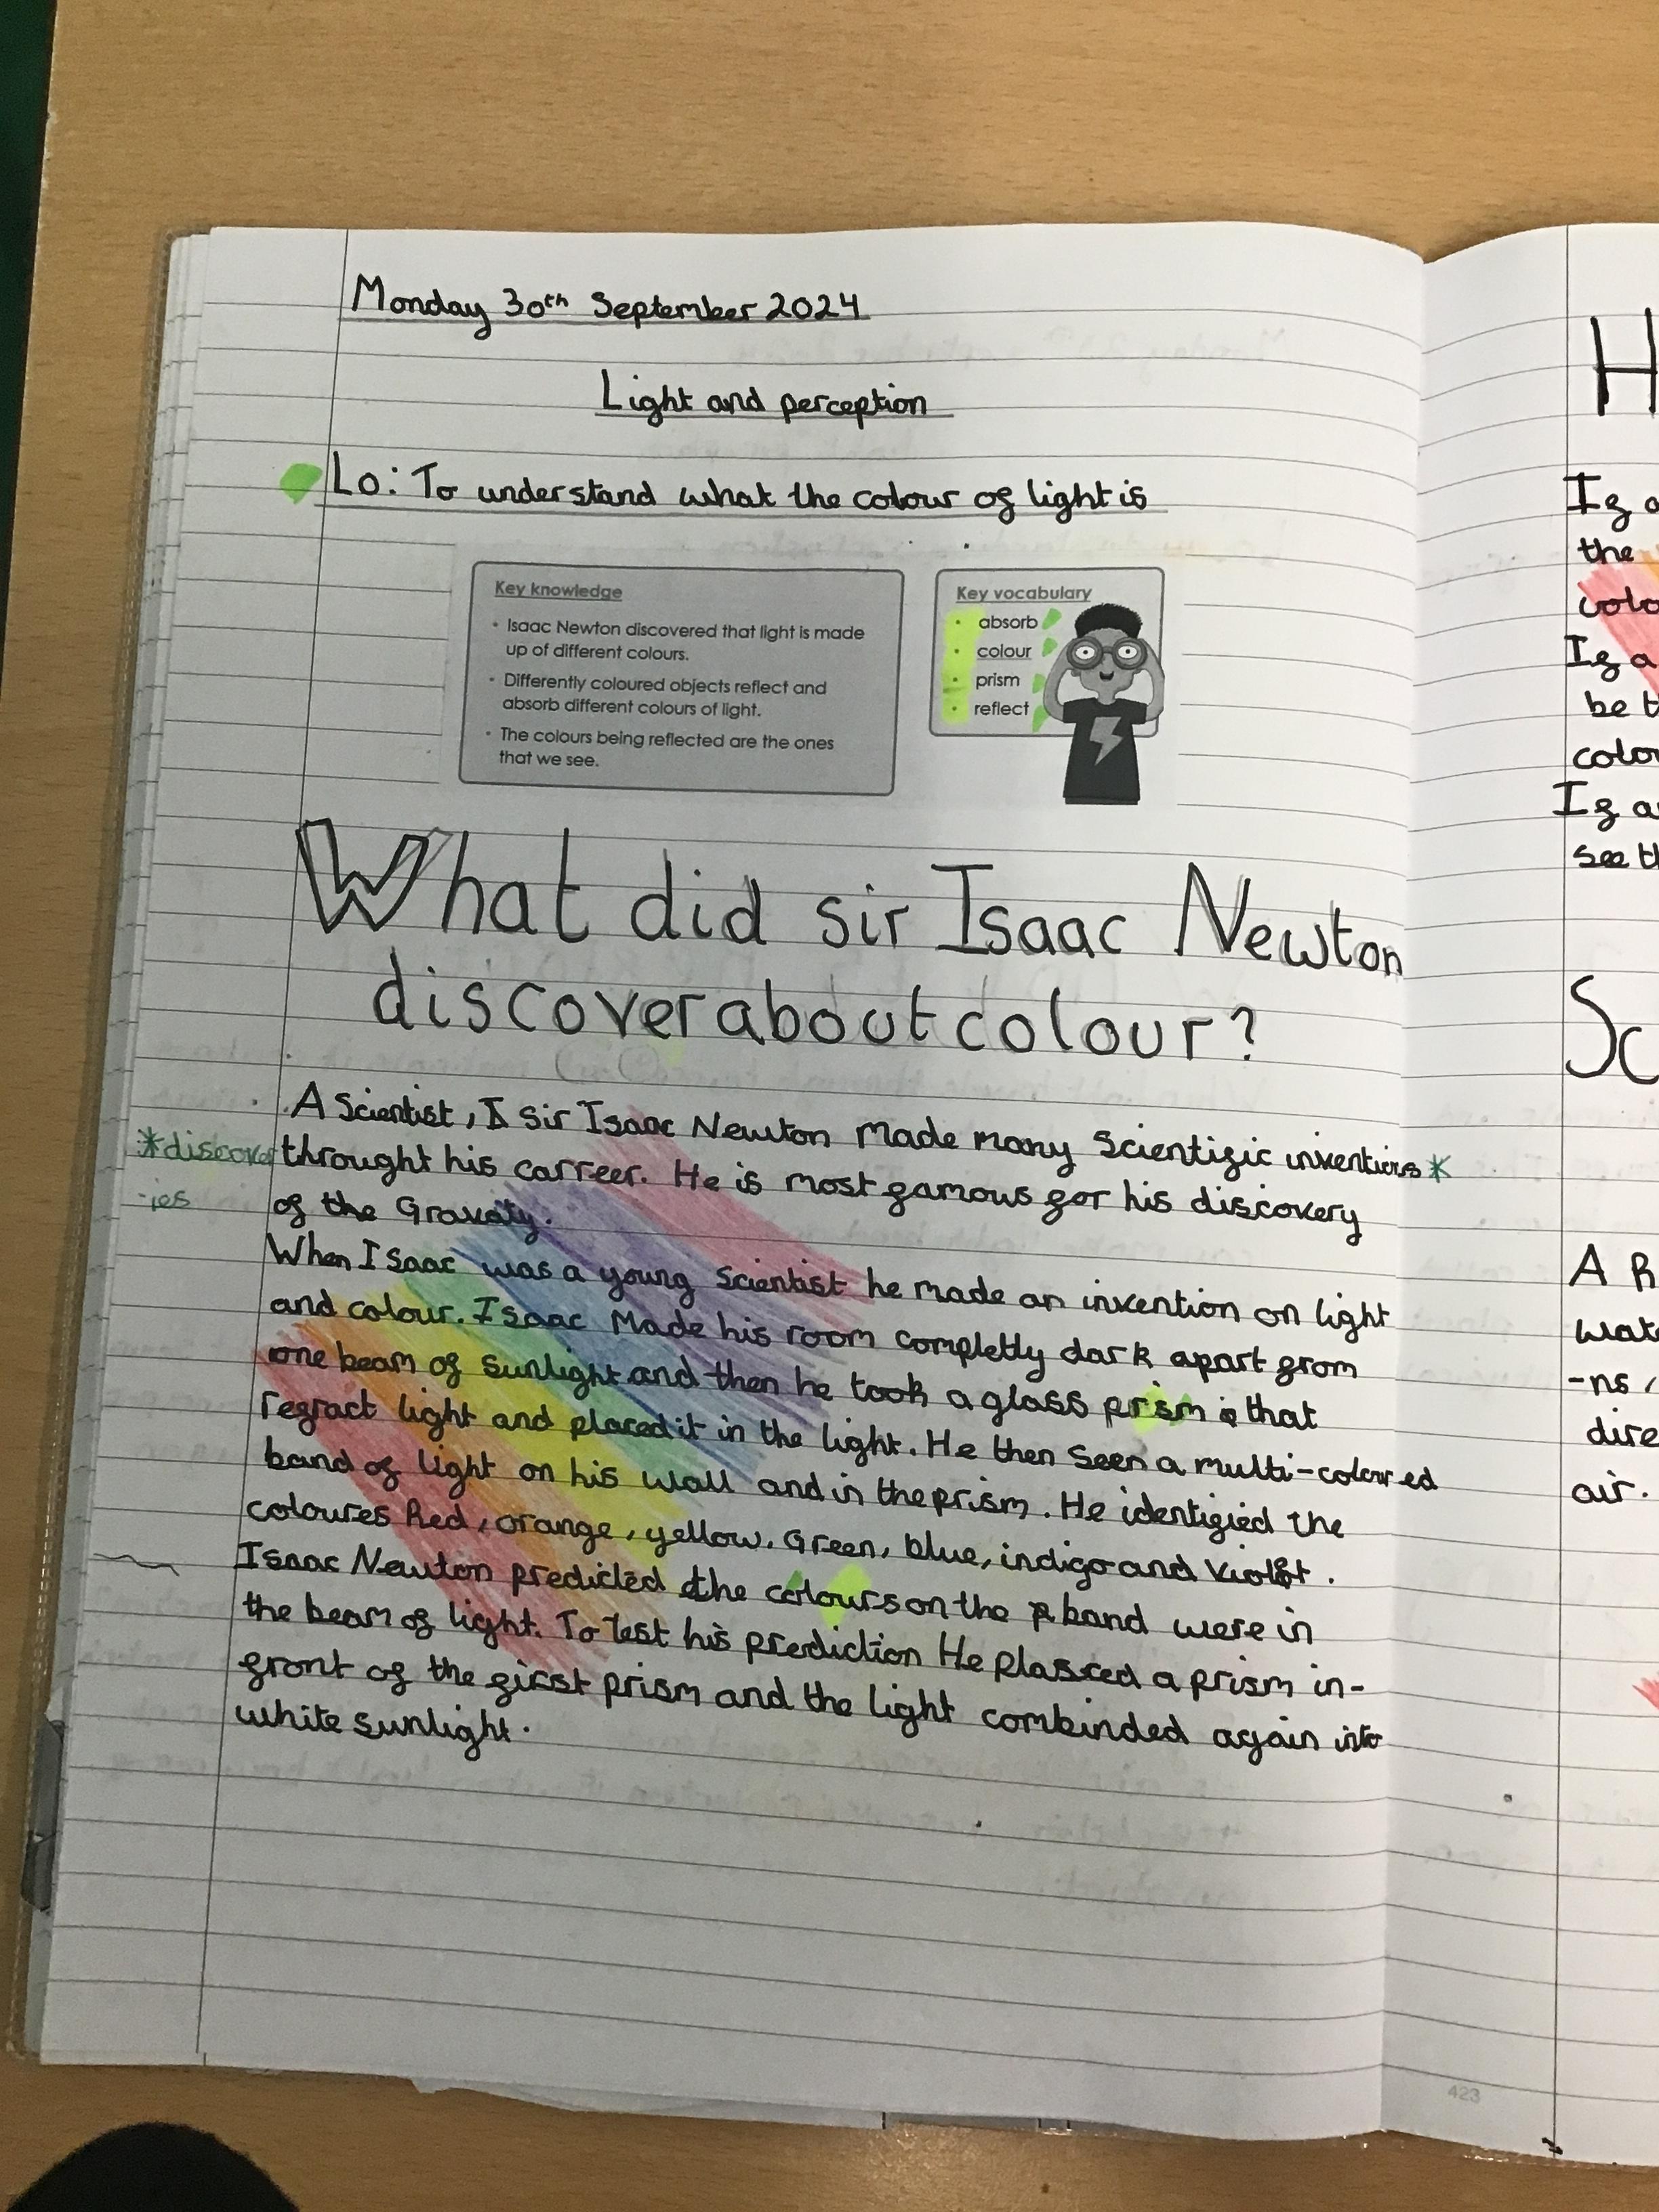 Monday 30th September 2024
Light and perception
Lo: To understand what the colour of light is
Key knowledge
• Isaac Newton discovered that light is made
up of different colours.
• Differently coloured objects reflect and
absorb different colours of light.
• The colours being reflected are the ones
that we see.
Key vocabulary
• absorb
• colour
• prism
• reflect
What did sir Isaac Newton
discover about colour?
A Scientist, sir Isaac Newton Made many Scientific inventions *
*discover
-ies
throught his carreer. He is most famous for his discovery
of the Gravity.
When Isaac was a young Scientist he made an invention on light
and colour. Isaac Made his room completly dark apart from
one beam of sunlight and then he took a glass prism that
refract light and placed it in the light. He then seen a multi-coloured
band of light on his wall and in the prism. He identified the
coloures Red, orange, yellow, Green, blue, indigo and violet.
Isaac Newton predicted the colours on the band were in
the beam of light. To Test his prediction He plasced a prism in-
front of the first prism and the light combinded again into
white sunlight.
423
H
If a
the
colo
If a
be t
colo
If a
see t
Sc
A R
wat
-ns,
dire
air.